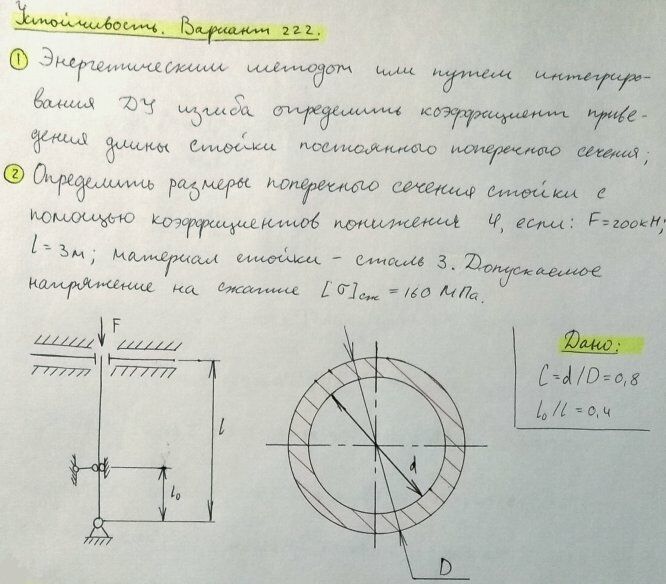 Устойчивость. Вариант 222.
① Энергетическим методом или путем интегриро-
вания ДУ изгиба определить коэффициент приве-
дения длины стойки постоянного поперечного сечения;
② Определить размеры поперечного сечения стойки с
помощью коэффициентов понижения φ, если: F=200кН;
l=3м; материал стойки - сталь 3. Допускаемое
напряжение на сжатие [σ]сж = 160 МПа.
F
l
l₀
d
D
Дано:
C=d/D=0,8
l₀/l=0,4